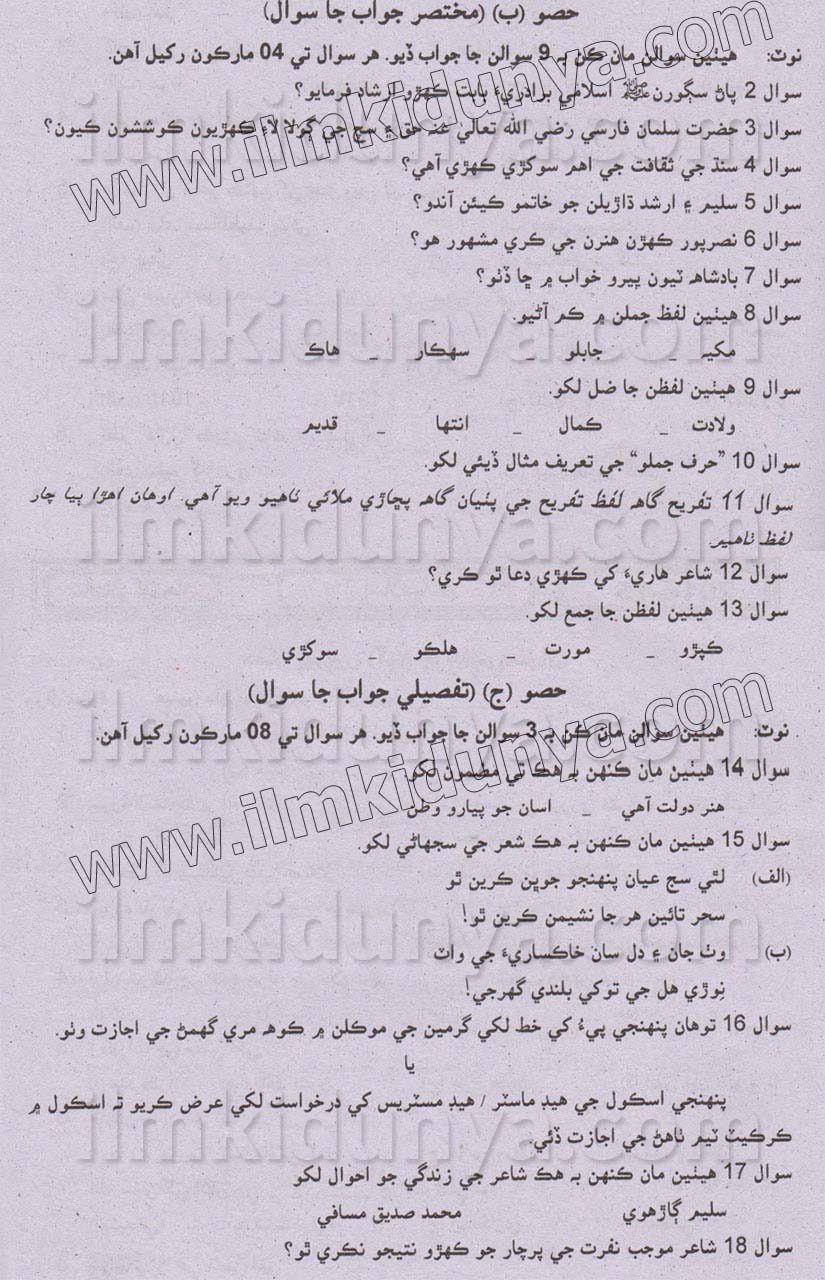 حصو (ب) (مختصر جواب جا سوال)
نوٽ: هيٺين سوالن مان ڪن به 9 سوالن جا جواب ڏيو. هر سوال تي 04 مارڪون رکيل آهن.
سوال 2 پاڻ سڳورن ﷺ اسلامي برادريءَ بابت ڪهڙو ارشاد فرمايو؟
سوال 3 حضرت سلمان فارسي رضي الله تعالي عنه حق ۽ سچ جي ڳولا لاءِ ڪهڙيون ڪوششون ڪيون؟
سوال 4 سنڌ جي ثقافت جي اهم سوکڙي ڪهڙي آهي؟
سوال 5 سليم ۽ ارشد ڌاڙيلن جو خاتمو ڪيئن آندو؟
سوال 6 نصرپور ڪهڙن هنرن جي ڪري مشهور هو؟
سوال 7 بادشاهه ٽيون ڀيرو خواب ۾ ڇا ڏٺو؟
سوال 8 هيٺين لفظ جملن ۾ ڪم آڻيو.
مکيه _ جابلو _ سهڪار _ هاڪ
سوال 9 هيٺين لفظن جا ضل لکو.
ولادت _ ڪمال _ انتها _ قديم
سوال 10 ”حرف جملو“ جي تعريف مثال ڏيئي لکو.
سوال 11 تفريح گاهه لفظ تفريح جي پٺيان گاهه پڇاڙي ملائي ٺاهيو ويو آهي. اوهان اهڙا ٻيا چار
لفظ ٺاهيو.
سوال 12 شاعر هاريءَ کي ڪهڙي دعا ٿو ڪري؟
سوال 13 هيٺين لفظن جا جمع لکو.
ڪپڙو _ مورت _ هلڪو _ سوکڙي
حصو (ج) (تفصيلي جواب جا سوال)
نوٽ: هيٺين سوالن مان ڪن به 3 سوالن جا جواب ڏيو. هر سوال تي 08 مارڪون رکيل آهن.
سوال 14 هيٺين مان ڪنهن به هڪ تي مضمون لکو
هنر دولت آهي _ اسان جو پيارو وطن
سوال 15 هيٺين مان ڪنهن به هڪ شعر جي سجهاڻي لکو.
(الف) لٿي سج عيان پنهنجو جوڀن ڪرين ٿو
سحر تائين هر جا نشيمن ڪرين ٿو!
(ب) وٺ جان ۽ دل سان خاڪساريءَ جي واٽ
نِوڙي هل جي توکي بلندي گهرجي!
سوال 16 توهان پنهنجي پيءُ کي خط لکي گرمين جي موڪلن ۾ ڪوهه مري گهمڻ جي اجازت وٺو.
يا
پنهنجي اسڪول جي هيڊ ماسٽر / هيڊ مسٽريس کي درخواست لکي عرض ڪريو ته اسڪول ۾
ڪرڪيٽ ٽيم ٺاهڻ جي اجازت ڏئي.
سوال 17 هيٺين مان ڪنهن به هڪ شاعر جي زندگي جو احوال لکو
سليم ڳاڙهوي محمد صديق مسافي
سوال 18 شاعر موجب نفرت جي پرچار جو ڪهڙو نتيجو نڪري ٿو؟
www.ilmkidunya.com
ilmkidunya.com
ilmkidunya.com
ilmkidunya.com
ilmkidunya.com
www.ilmkidunya.com
ilmkidunya.com
ilmkidunya.com